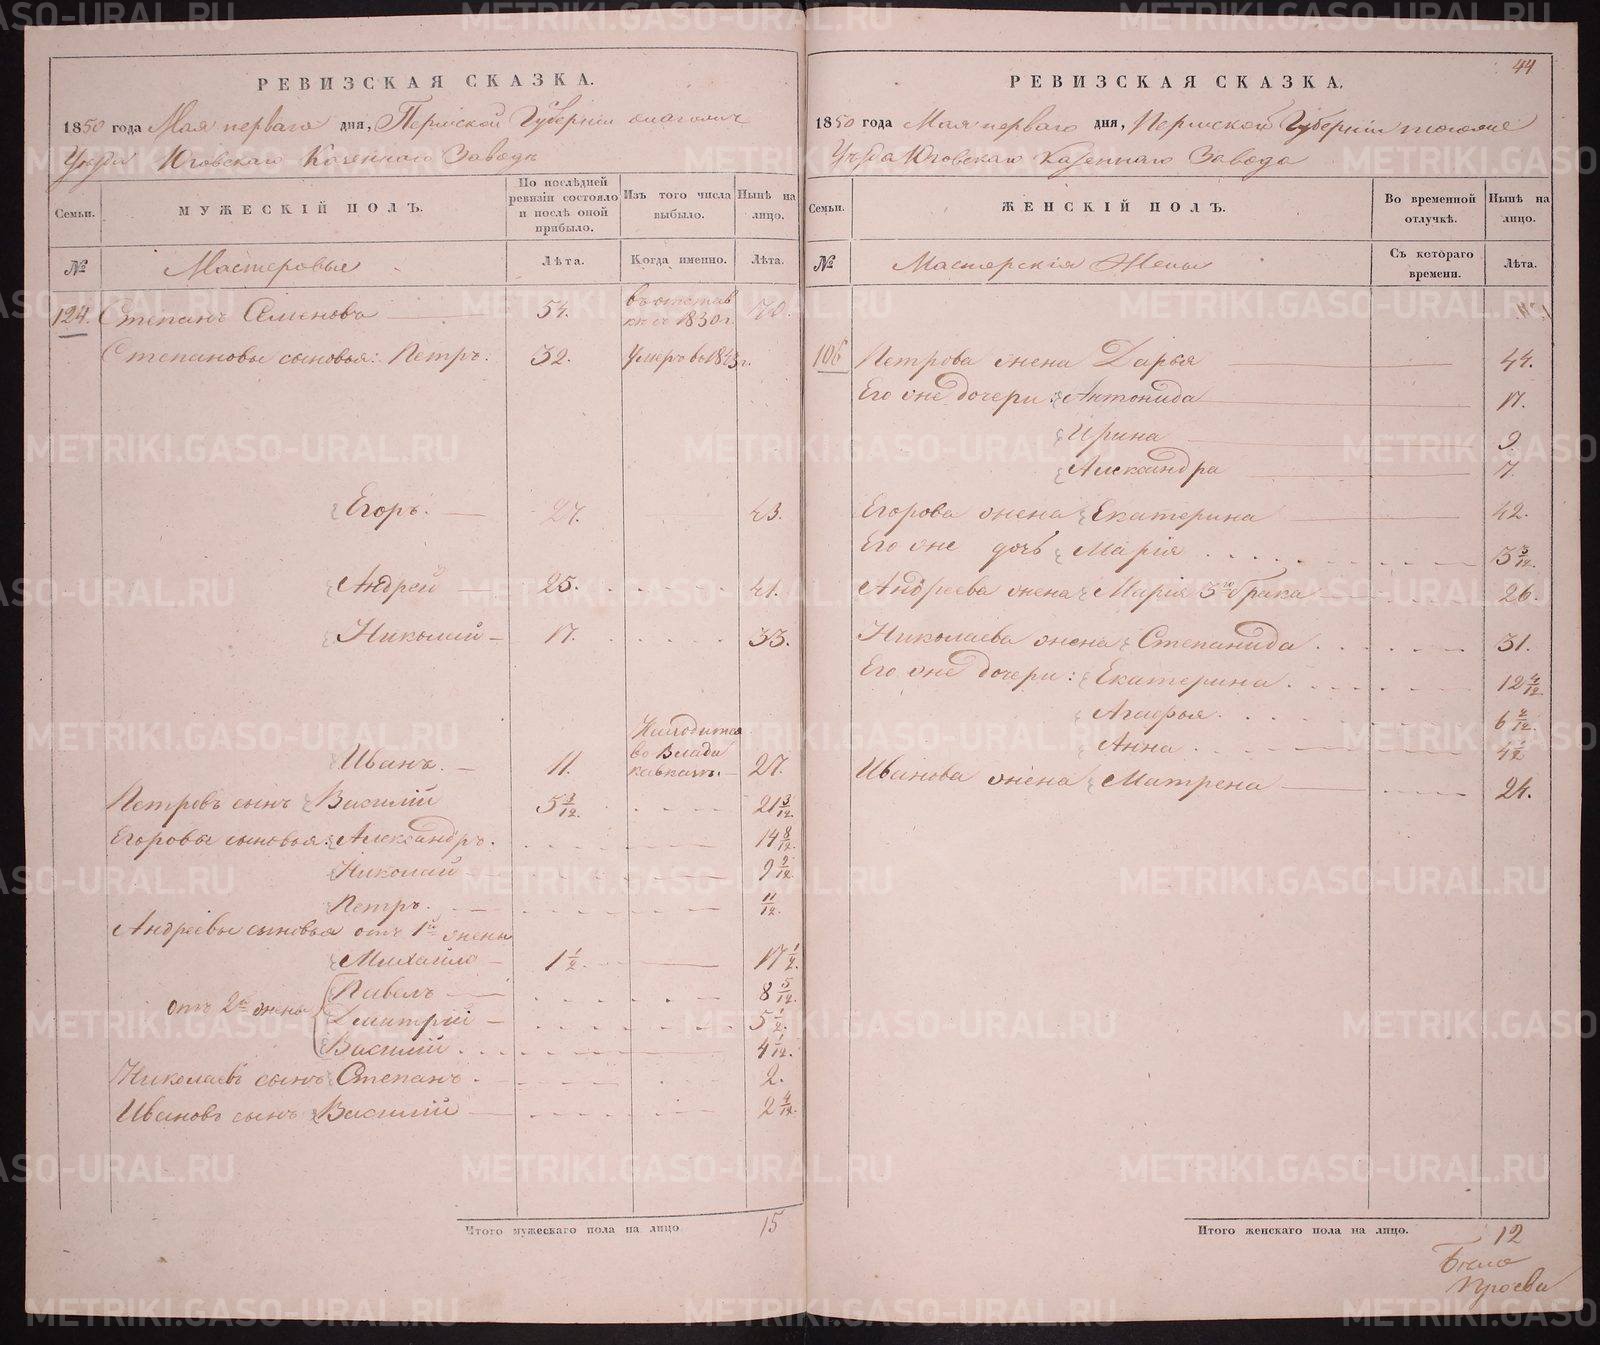 РЕВИЗСКАЯ СКАЗКА.
1850 года Мая перваго дня, Пермской Губернiи
Уезда Юговскаго Казеннаго Завода
Семьи.
МУЖЕСКIЙ ПОЛЪ.
По послѣдней ревизiи состояло и послѣ оной прибыло.
Изъ того числа выбыло.
Нынѣ на лицо.
№
Мастеровые
Лѣта.
Когда именно.
Лѣта.
124. Степанъ Семеновъ 54. въ отставке съ 1830 г. 70.
Степановы сыновья: Петръ. 32. Умеръ въ 1843 г.
Егоръ. 27. 43.
Андрей 25. 41.
Николай 17. 33.
Иванъ. 11. Находится во Владикавказе. 27.
Петровъ сынъ Василiй 5 3/12. 21 3/12.
Егоровы сыновья: Александръ. 14 8/12.
Николай 9 2/12.
Петръ. 11/12.
Андреевы сыновья отъ 1й жены
Михайло 1 1/2. 17 1/2.
отъ 2й жены Павелъ 8 5/12.
Дмитрiй 5 1/2.
Василiй 4 1/12.
Николаевъ сынъ Степанъ. 2.
Ивановъ сынъ Василiй 2 4/12.
Итого мужескаго пола на лицо 15
44
РЕВИЗСКАЯ СКАЗКА.
1850 года Мая перваго дня, Пермской Губернiи
Уезда Юговскаго Казеннаго Завода
Семьи.
ЖЕНСКIЙ ПОЛЪ.
Во временной отлучкѣ.
Нынѣ на лицо.
№
Мастерскiя Жены
Съ котораго времени.
Лѣта.
106 Петрова жена Дарья 44.
Его же дочери: Антонида 17.
Ирина 9
Александра 7.
Егорова жена Екатерина 42.
Его же дочь Марiя 5 3/12.
Андреева жена Марiя 3го брака 26.
Николаева жена Степанида 31.
Его же дочери: Екатерина 12 4/12
Агафья 6 2/12.
Анна 4 1/2
Иванова жена Матрена 24.
Итого женскаго пола на лицо. 12
METRIKI.GASO-URAL.RU